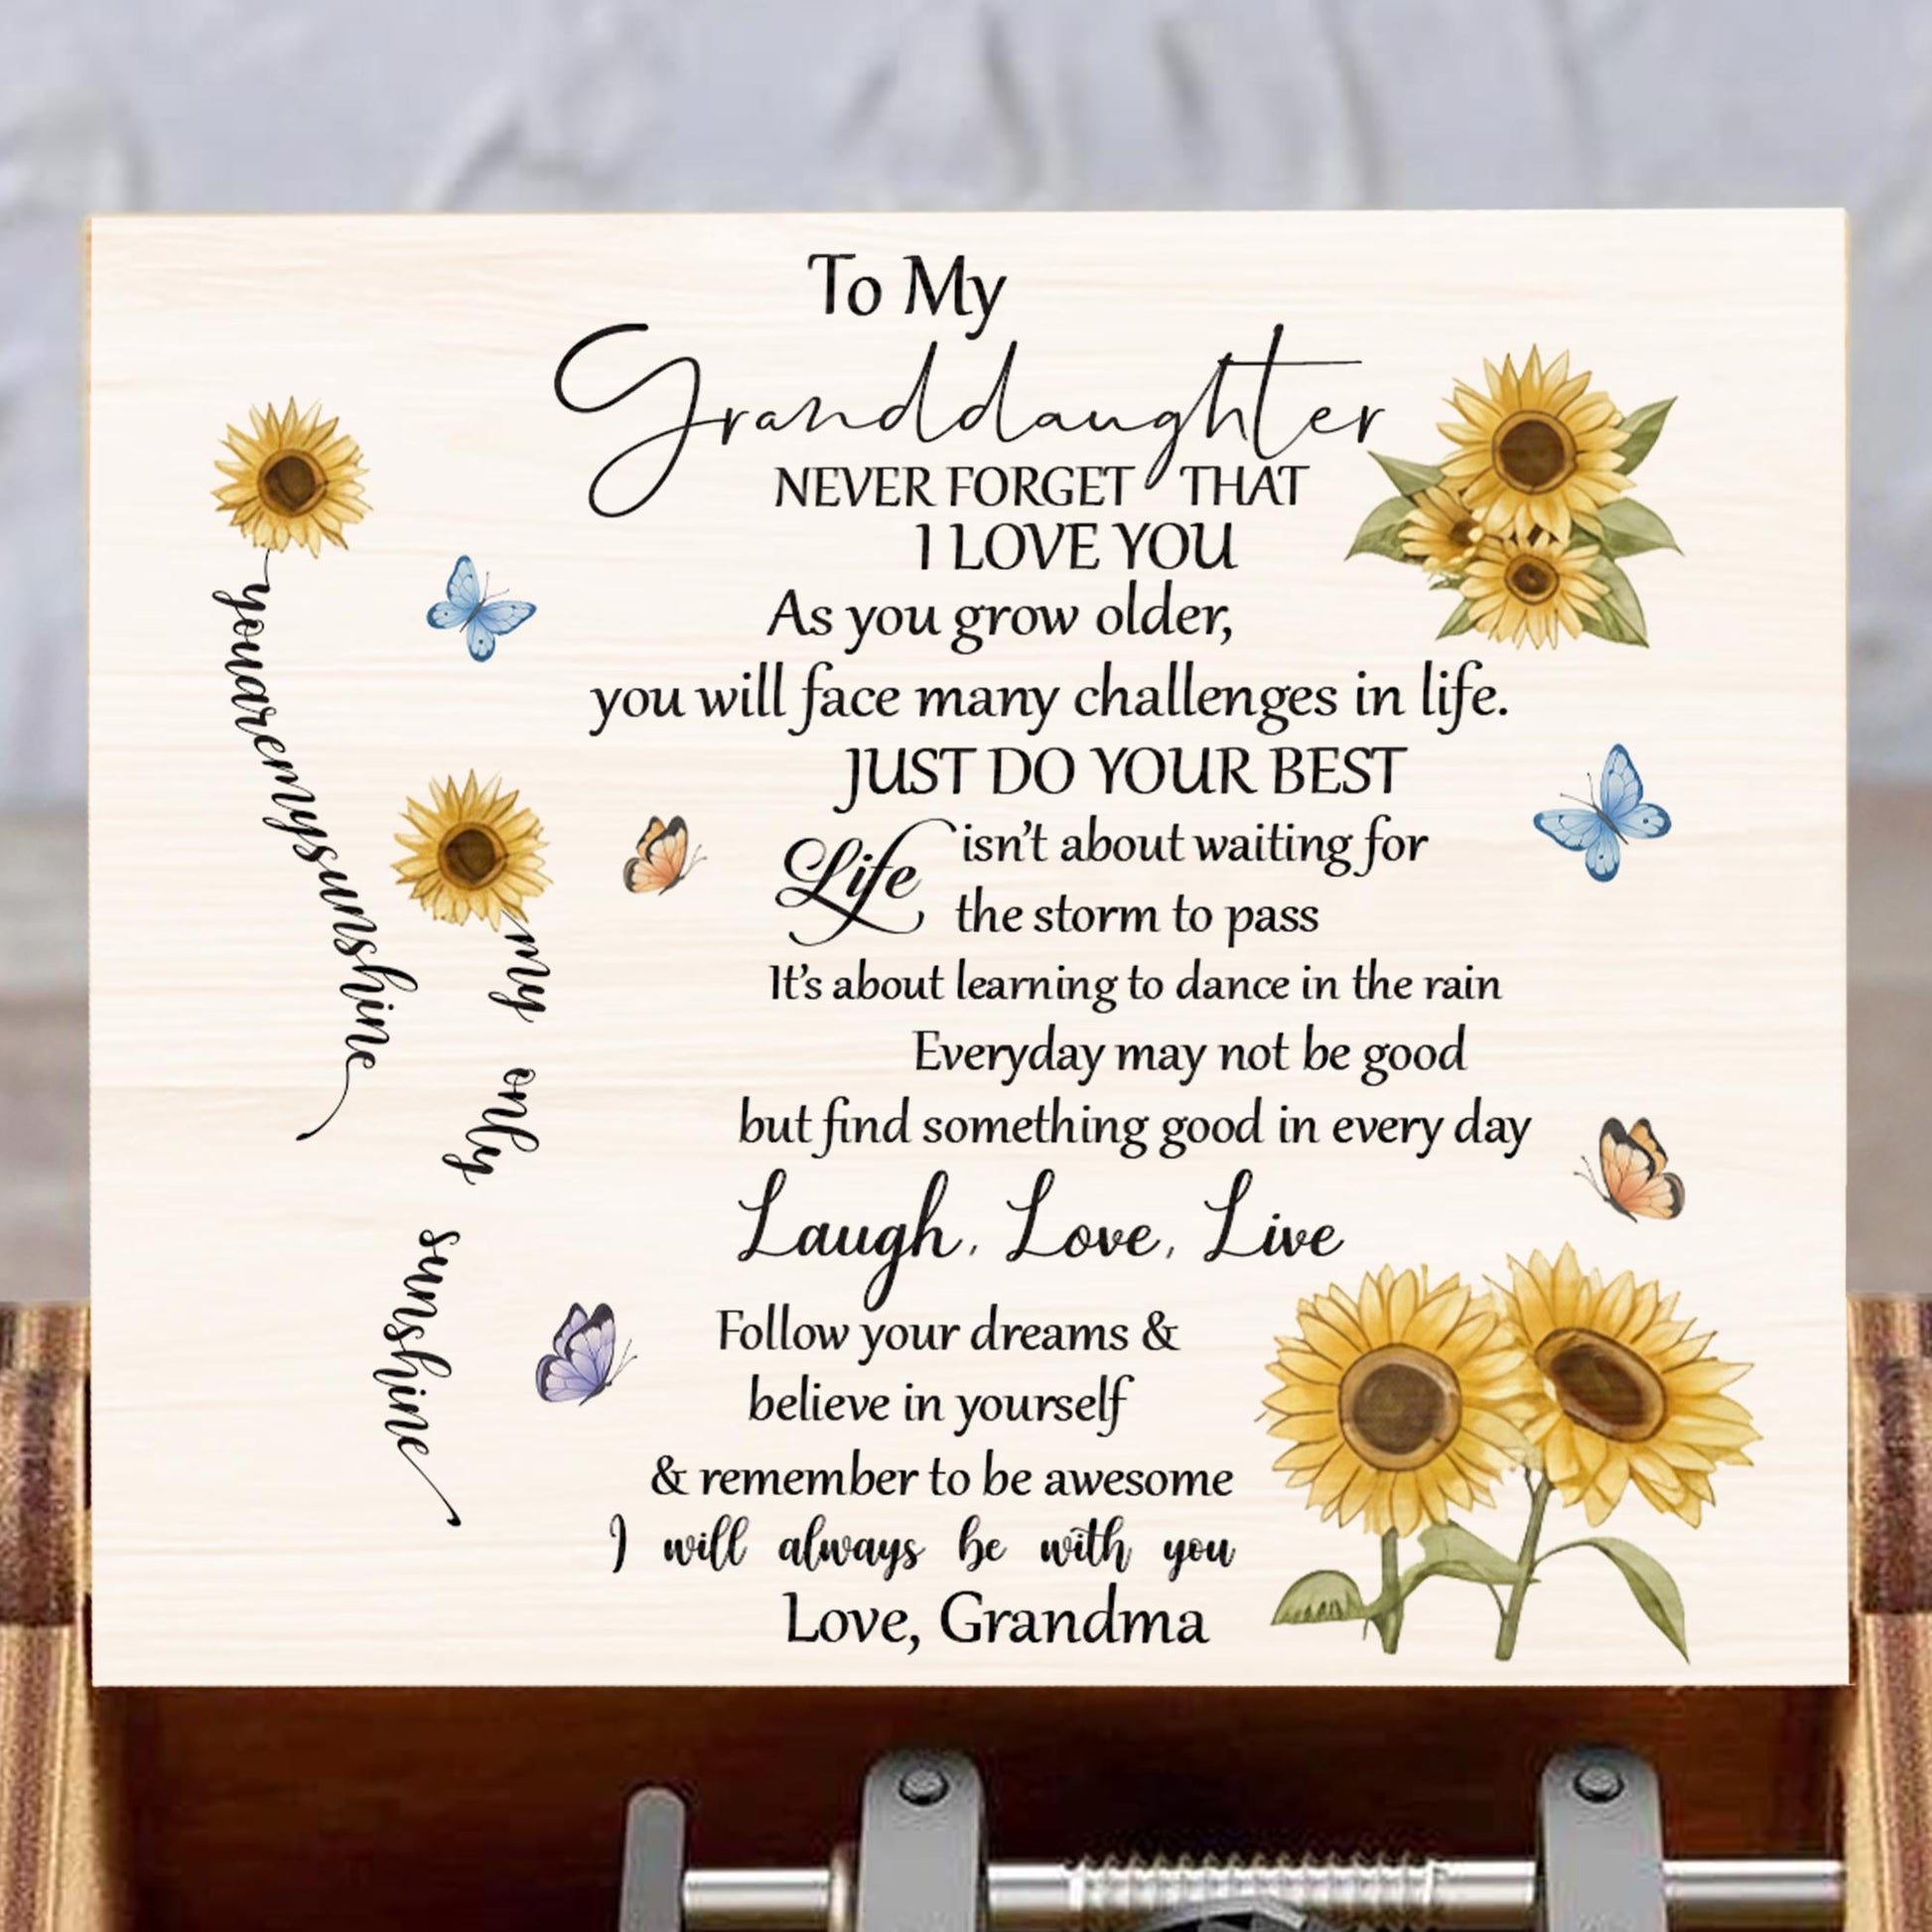 To My
Granddaughter
NEVER FORGET THAT
I LOVE YOU
As you grow older,
you will face many challenges in life.
JUST DO YOUR BEST
Life isn't about waiting for
the storm to pass
It's about learning to dance in the rain
Everyday may not be good
but find something good in every day
Laugh, Love, Live
Follow your dreams &
believe in yourself
& remember to be awesome
I will always be with you
Love, Grandma
youaremysunshine
my only sunshine